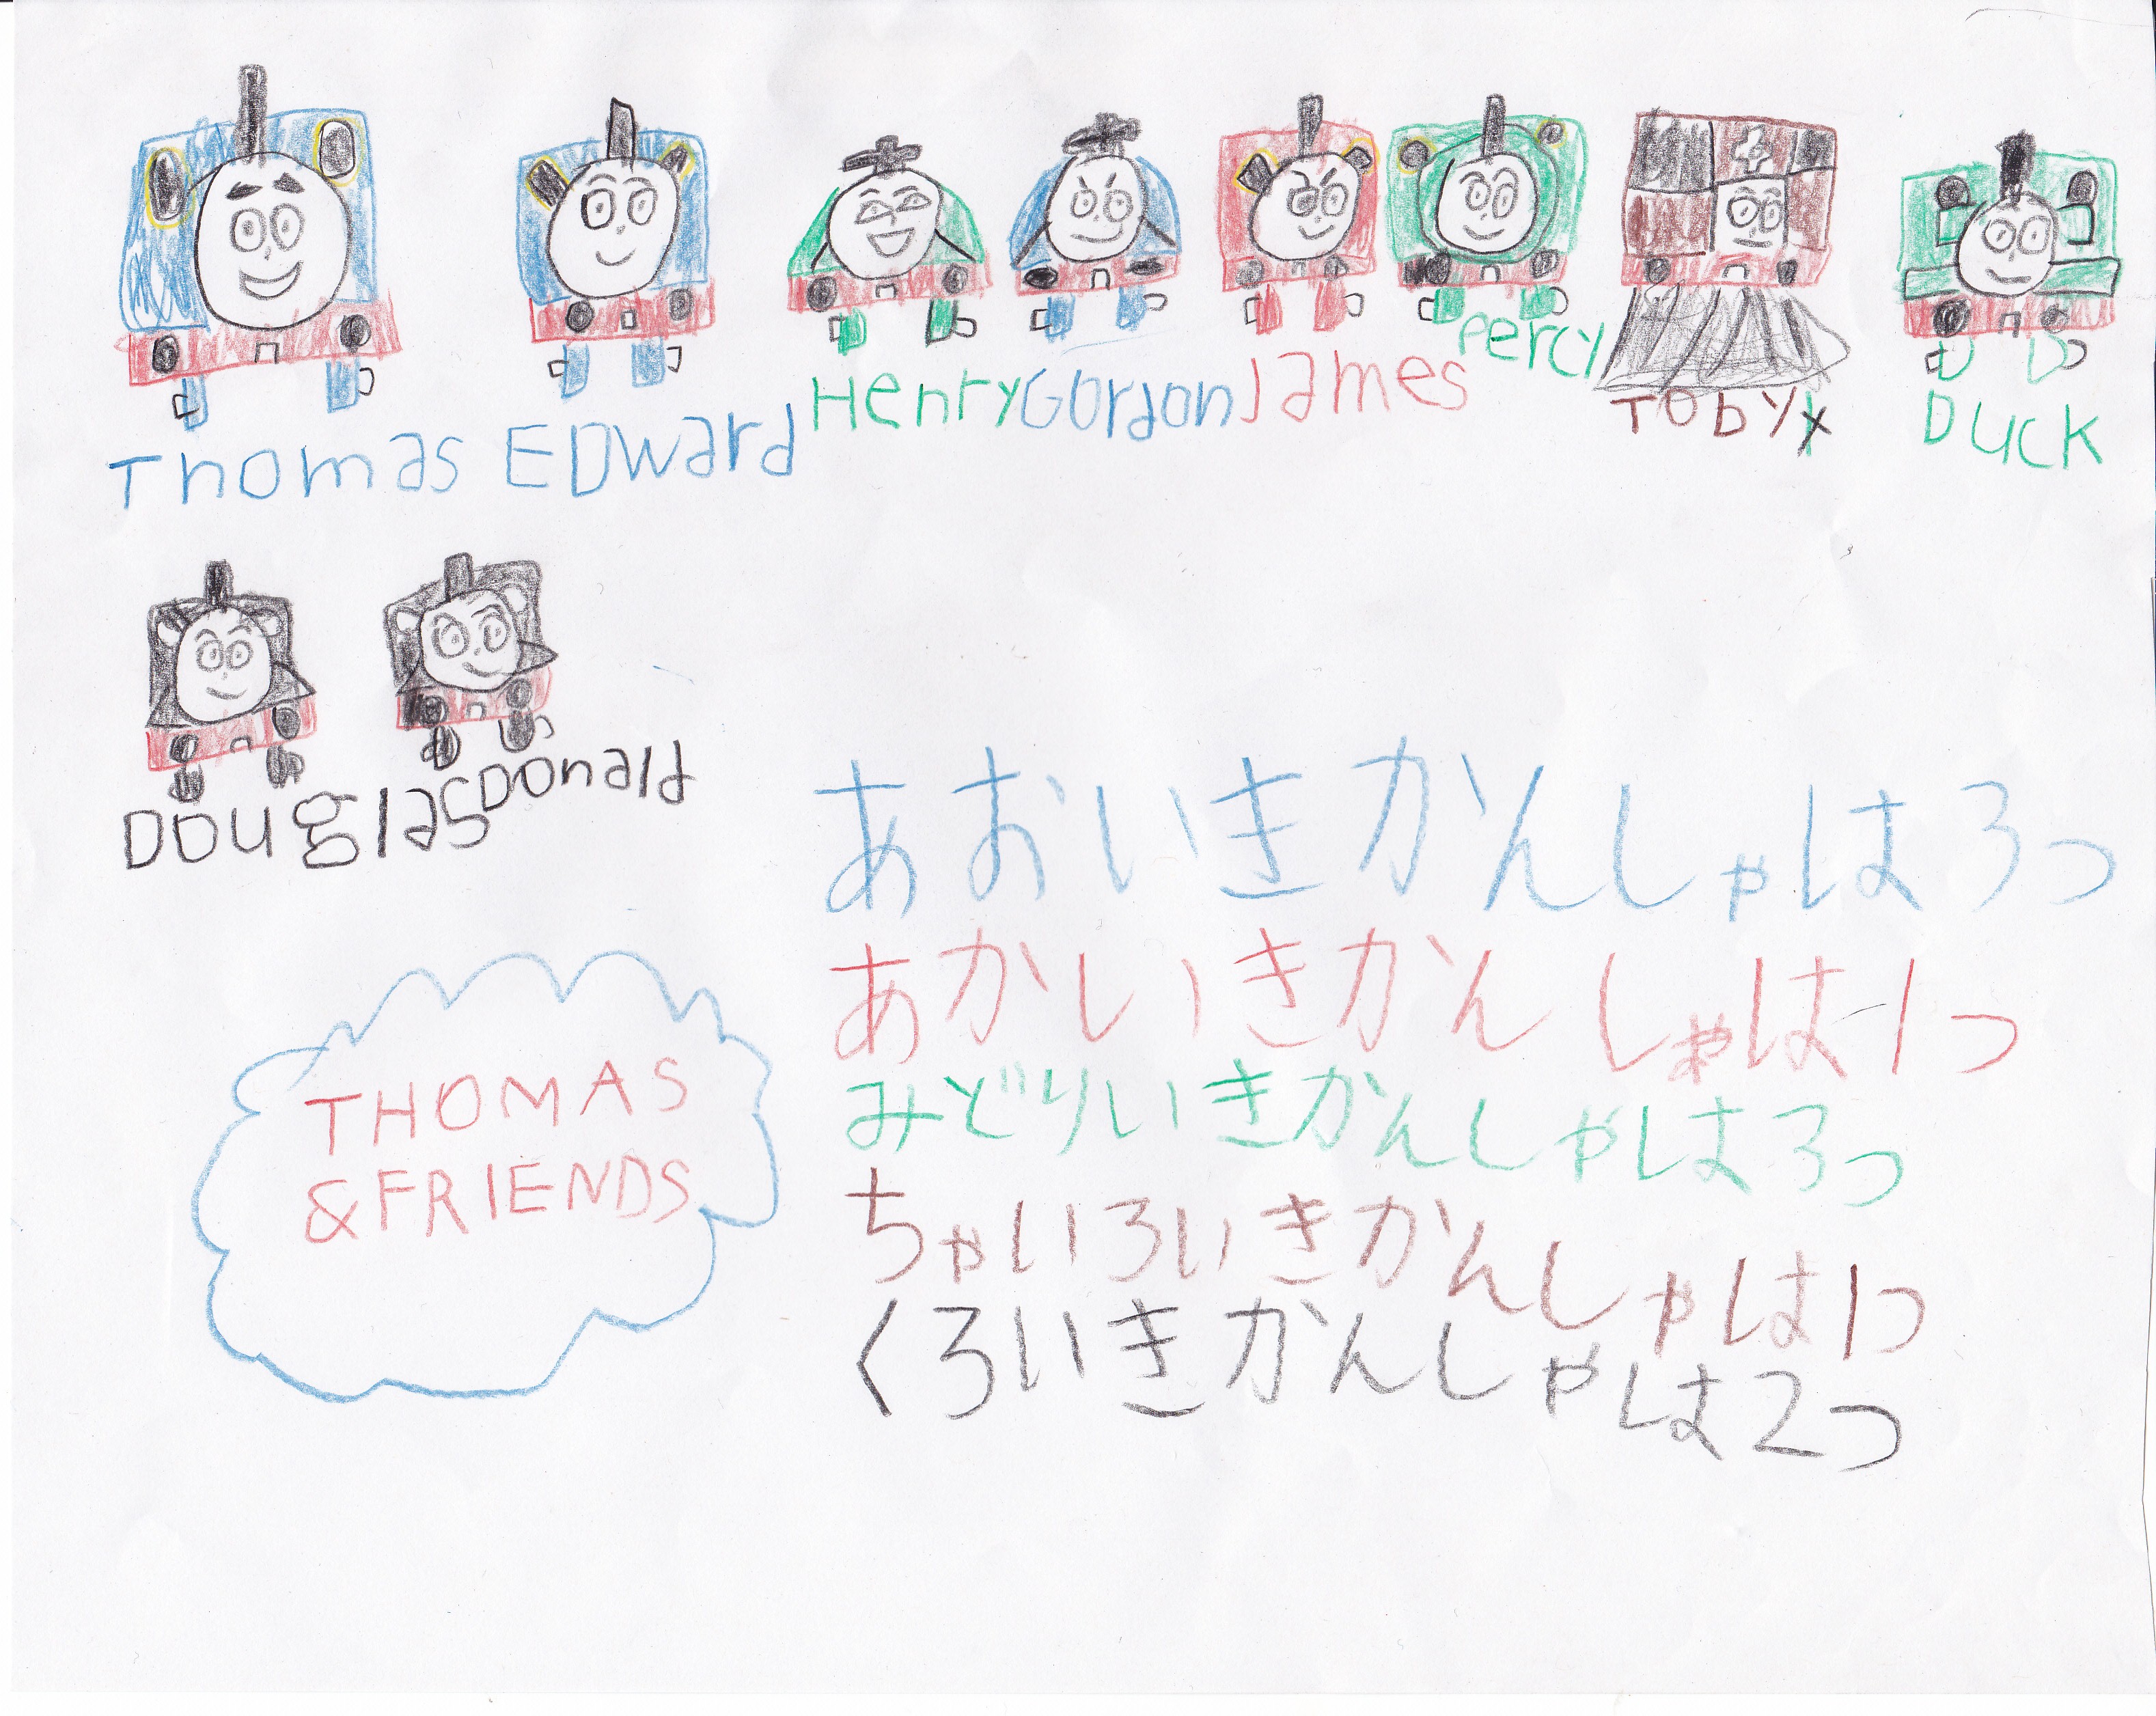 Thomas EDward Henry Gordon James Percy Toby Duck
Douglas Donald
あおいきかんしゃは3つ
あかいきかんしゃは1つ
みどりいきかんしゃは3つ
ちゃいろいきかんしゃは1つ
くろいきかんしゃは2つ
THOMAS
&FRIENDS